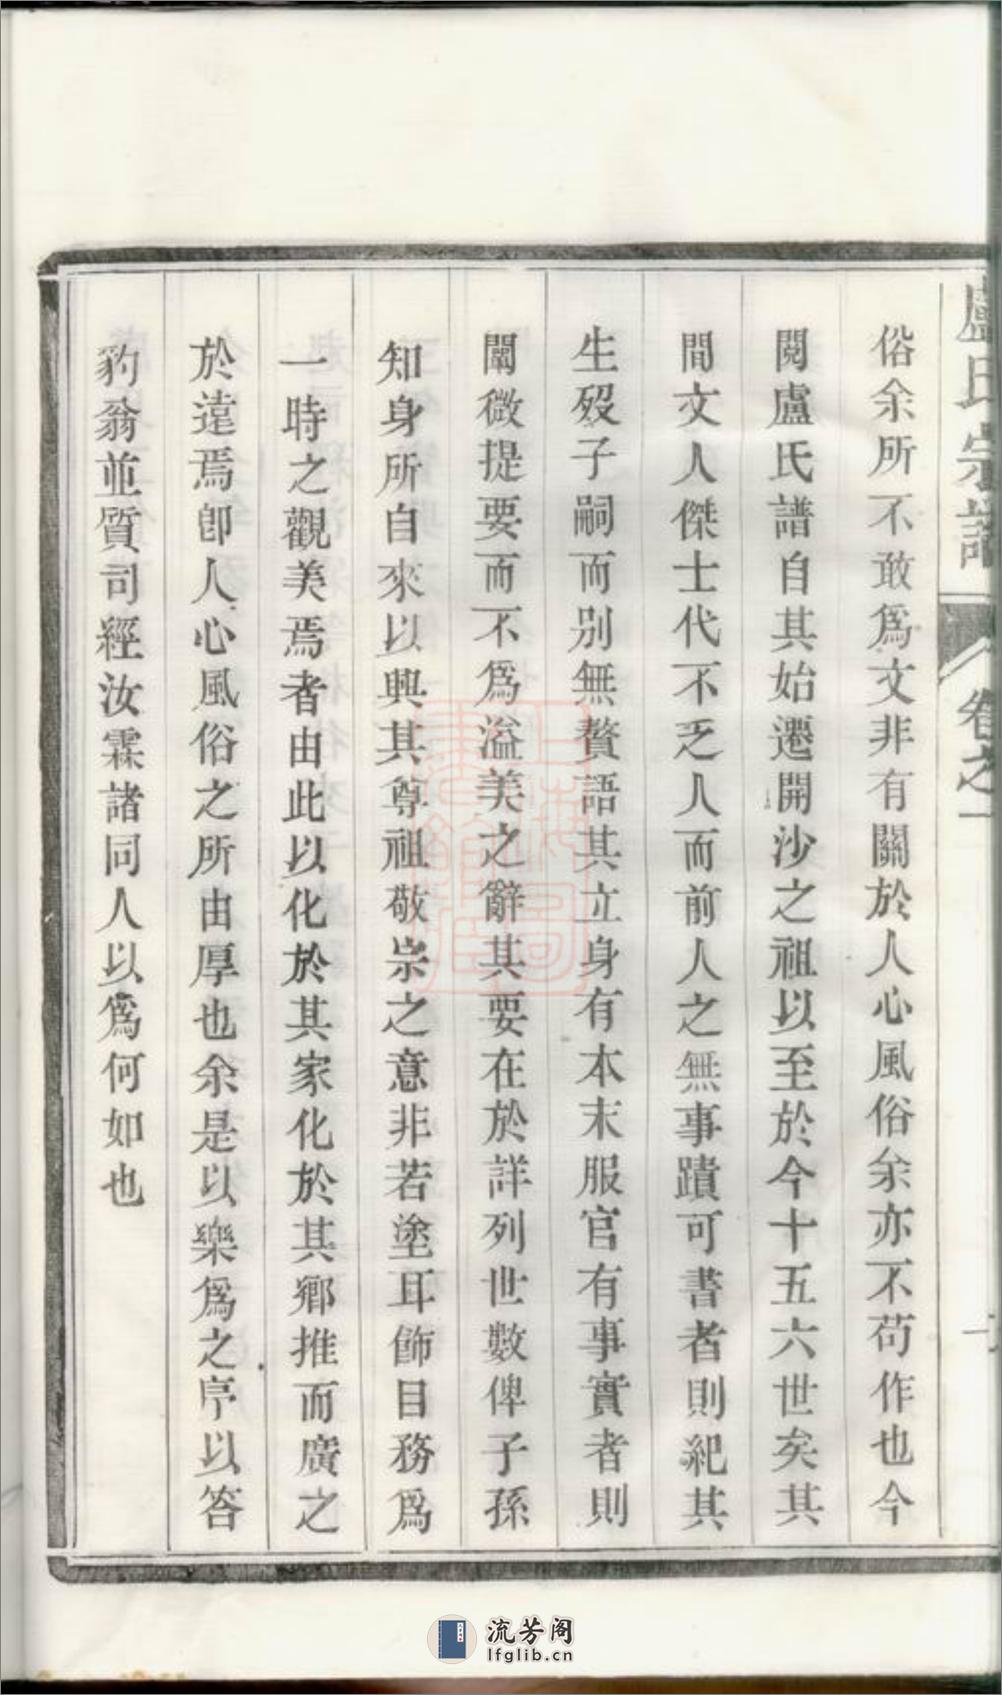 盧氏宗譜 卷之一
俗余所不敢爲文非有關於人心風俗余亦不苟作也今
閱盧氏譜自其始遷開沙之祖以至於今十五六世矣其
間文人傑士代不乏人而前人之無事蹟可書者則紀其
生歿子嗣而别無贅語其立身有本末服官有事實者則
闡微提要而不爲溢美之辭其要在於詳列世數俾子孫
知身所自來以興其尊祖敬宗之意非若塗耳飾目務爲
一時之觀美焉者由此以化於其家化於其鄉推而廣之
於遠焉卽人心風俗之所由厚也余是以樂爲之序以答
豹翁並質司經汝霖諸同人以爲何如也
流芳阁
lfglib.cn